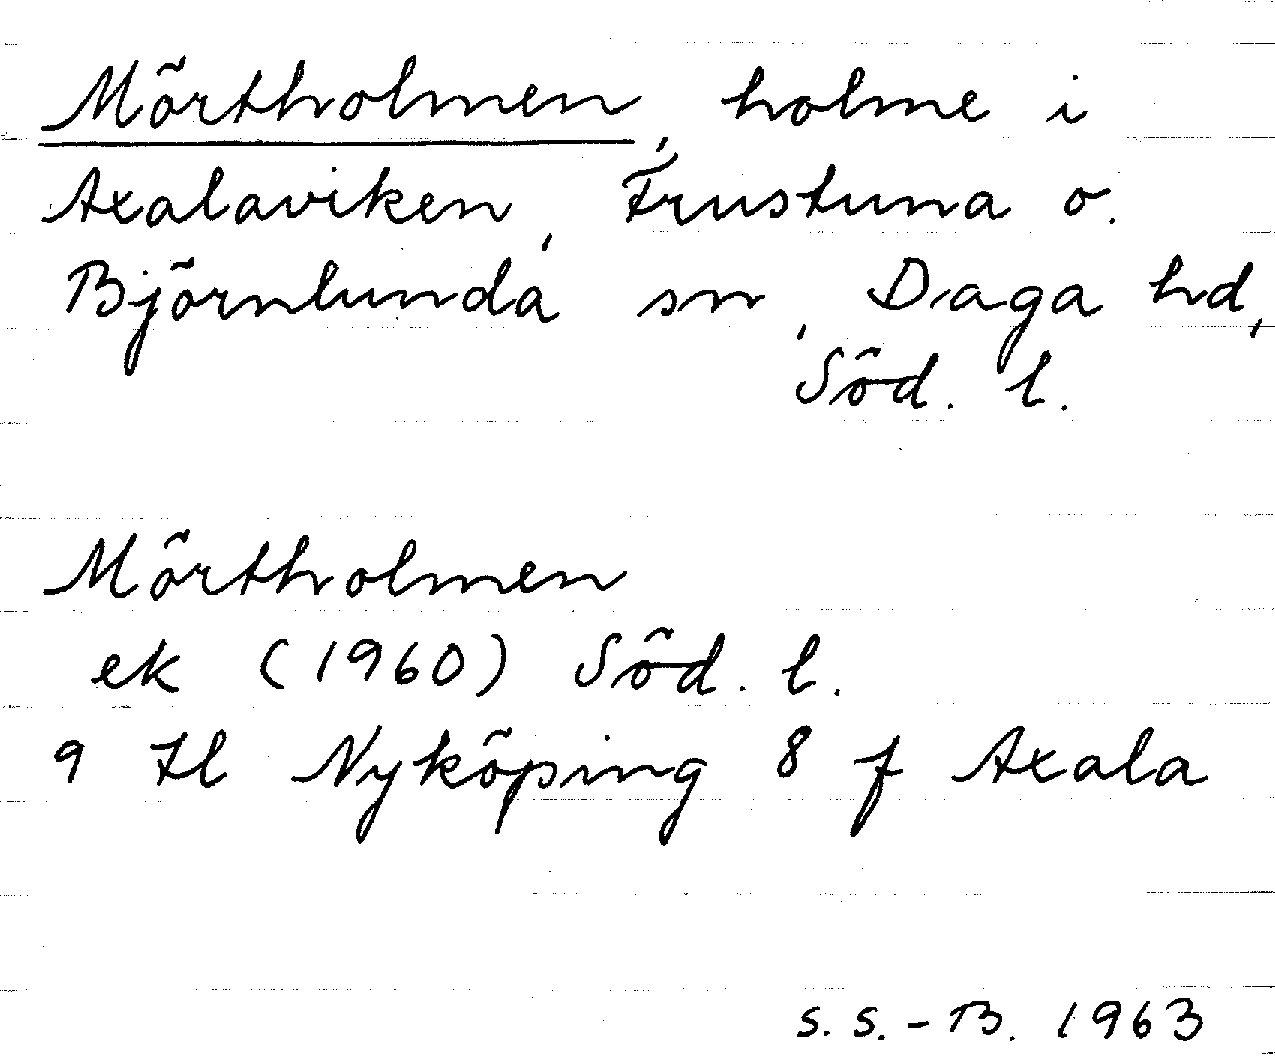 Mörtholmen, holme i
Axalaviken, Frustuna o.
Björnlunda sn, Daga hd,
Söd. l.
Mörtholmen
ek (1960) Söd. l.
9 H l Nyköping 8 f Axala
S. S.-B. 1963